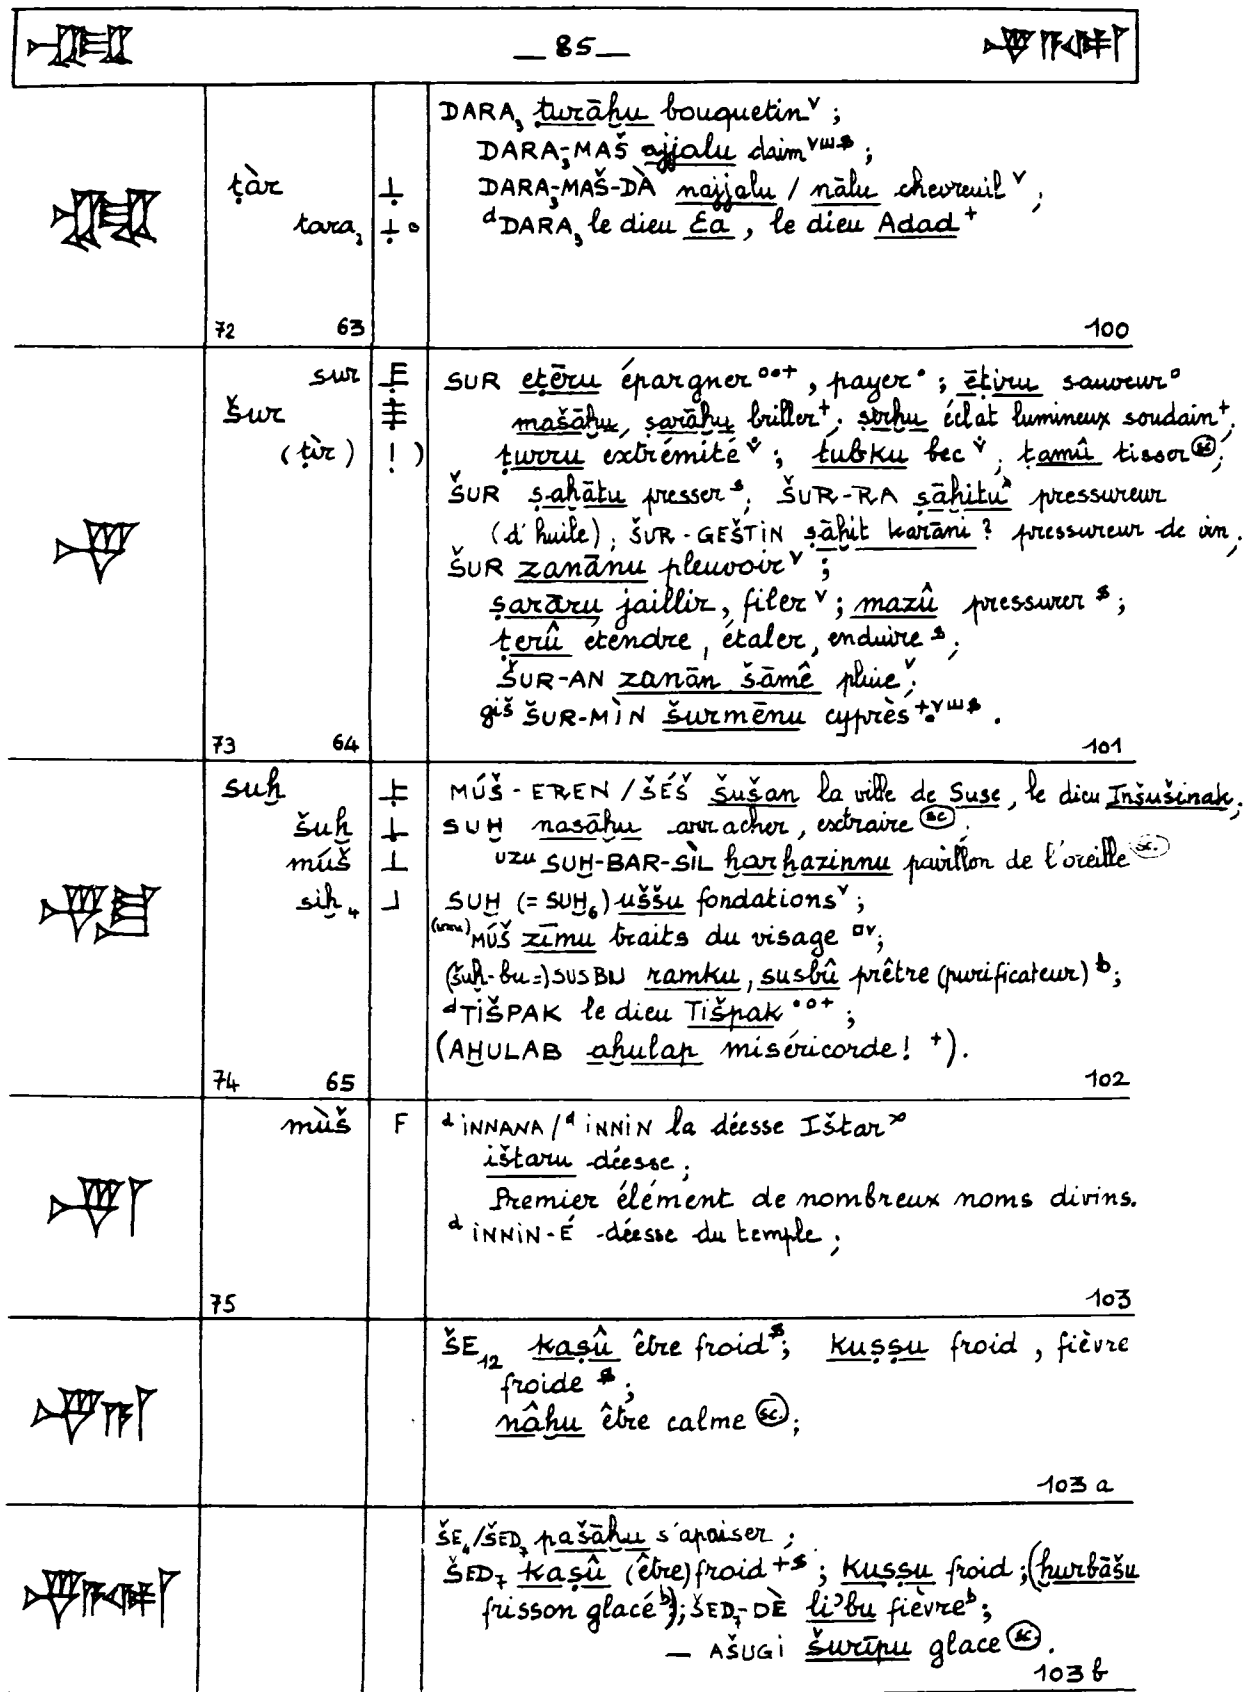 — 85 —
DARA₃ ṭurāḫu bouquetin ᵛ ;
DARA₃-MAŠ ajjalu daim ;
ṭàr DARA₃-MAŠ-DÀ najjalu / nālu chevreuil ᵛ ;
tara₃ ᵈDARA₃ le dieu Ea , le dieu Adad ⁺
72 63 100
sur SUR eṭēru épargner °°⁺ , payer ° ; ēṭiru sauveur °
šur mašāḫu, ṣarāḫu briller ⁺ ; ṣirḫu éclat lumineux soudain ⁺ ;
(ṭùr) ! ) ṭurru extrémité ᵛ ; bec ᵛ ; ṭamû tisser (sc) ;
ŠUR ṣaḫātu presser ˢ ; ŠUR-RA ṣāḫitu pressureur
(d'huile) ; ŠUR-GEŠTIN ṣāḫit karāni ? pressureur de vin ;
ŠUR zanānu pleuvoir ᵛ ;
ṣarāru jaillir, filer ᵛ ; mazû pressurer ˢ ;
ṭerû étendre, étaler, enduire ˢ ;
ŠUR-AN zanān šāmê pluie ᵛ ;
giš ŠUR-MÌN šurmēnu cyprès .
73 64 101
suḫ MÚŠ-EREN / ŠÉŠ šušan la ville de Suse, le dieu Inšušinak ;
šuḫ SUḪ nasāḫu arracher, extraire (sc) ;
múš uzu SUḪ-BAR-SÌL ḫarḫazinnu pavillon de l'oreille (sc.)
siḫ₄ SUḪ (= SUḪ₆) uššu fondations ᵛ ;
MÚŠ zīmu traits du visage ᵛ ;
(šuḫ-bu =) SUSBU ramku, susbû prêtre (purificateur) ᵇ ;
ᵈTIŠPAK le dieu Tišpak °°⁺ ;
(AḪULAB aḫulap miséricorde ! ⁺).
74 65 102
mùš F ᵈINNANA / ᵈINNIN la déesse Ištar
ištaru déesse ;
Premier élément de nombreux noms divins.
ᵈINNIN-É déesse du temple ;
75 103
ŠE₁₂ kaṣû être froid ˢ ; kuṣṣu froid , fièvre
froide ˢ ;
nâḫu être calme (sc) ;
103 a
ŠE₄/ŠED₇ pašāḫu s'apaiser ;
ŠED₇ kaṣû (être) froid ⁺ˢ ; kuṣṣu froid ; (ḫurbāšu
frisson glacé ᵇ) ; ŠED₇-DÈ li'bu fièvre ᵇ ;
— AŠUGI šurīpu glace (sc) .
103 b